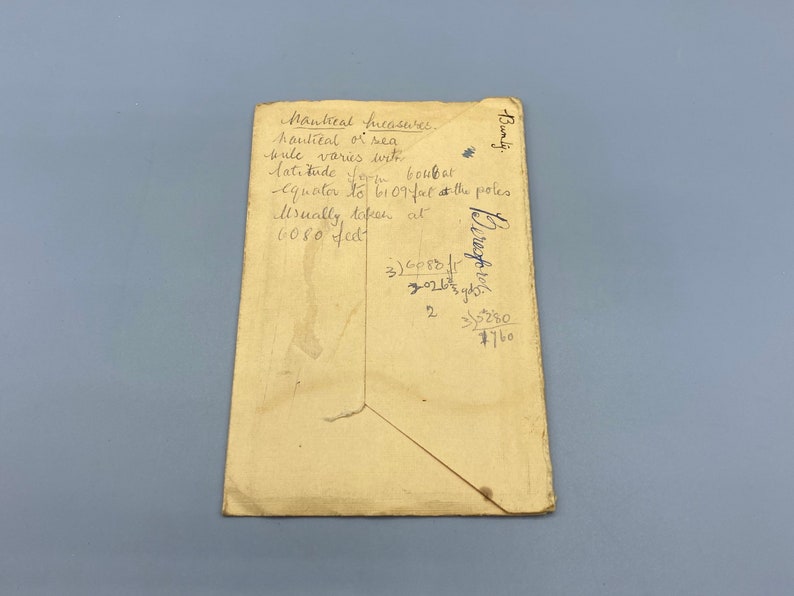 Nautical Measures.
Nautical or sea
Mile varies with
latitude from 6046 at
equator to 6109 feet at the poles
Usually taken at
6080 feet
3)6080 ft
2026 2/3 yds
2
3)5280
1760
Beresford